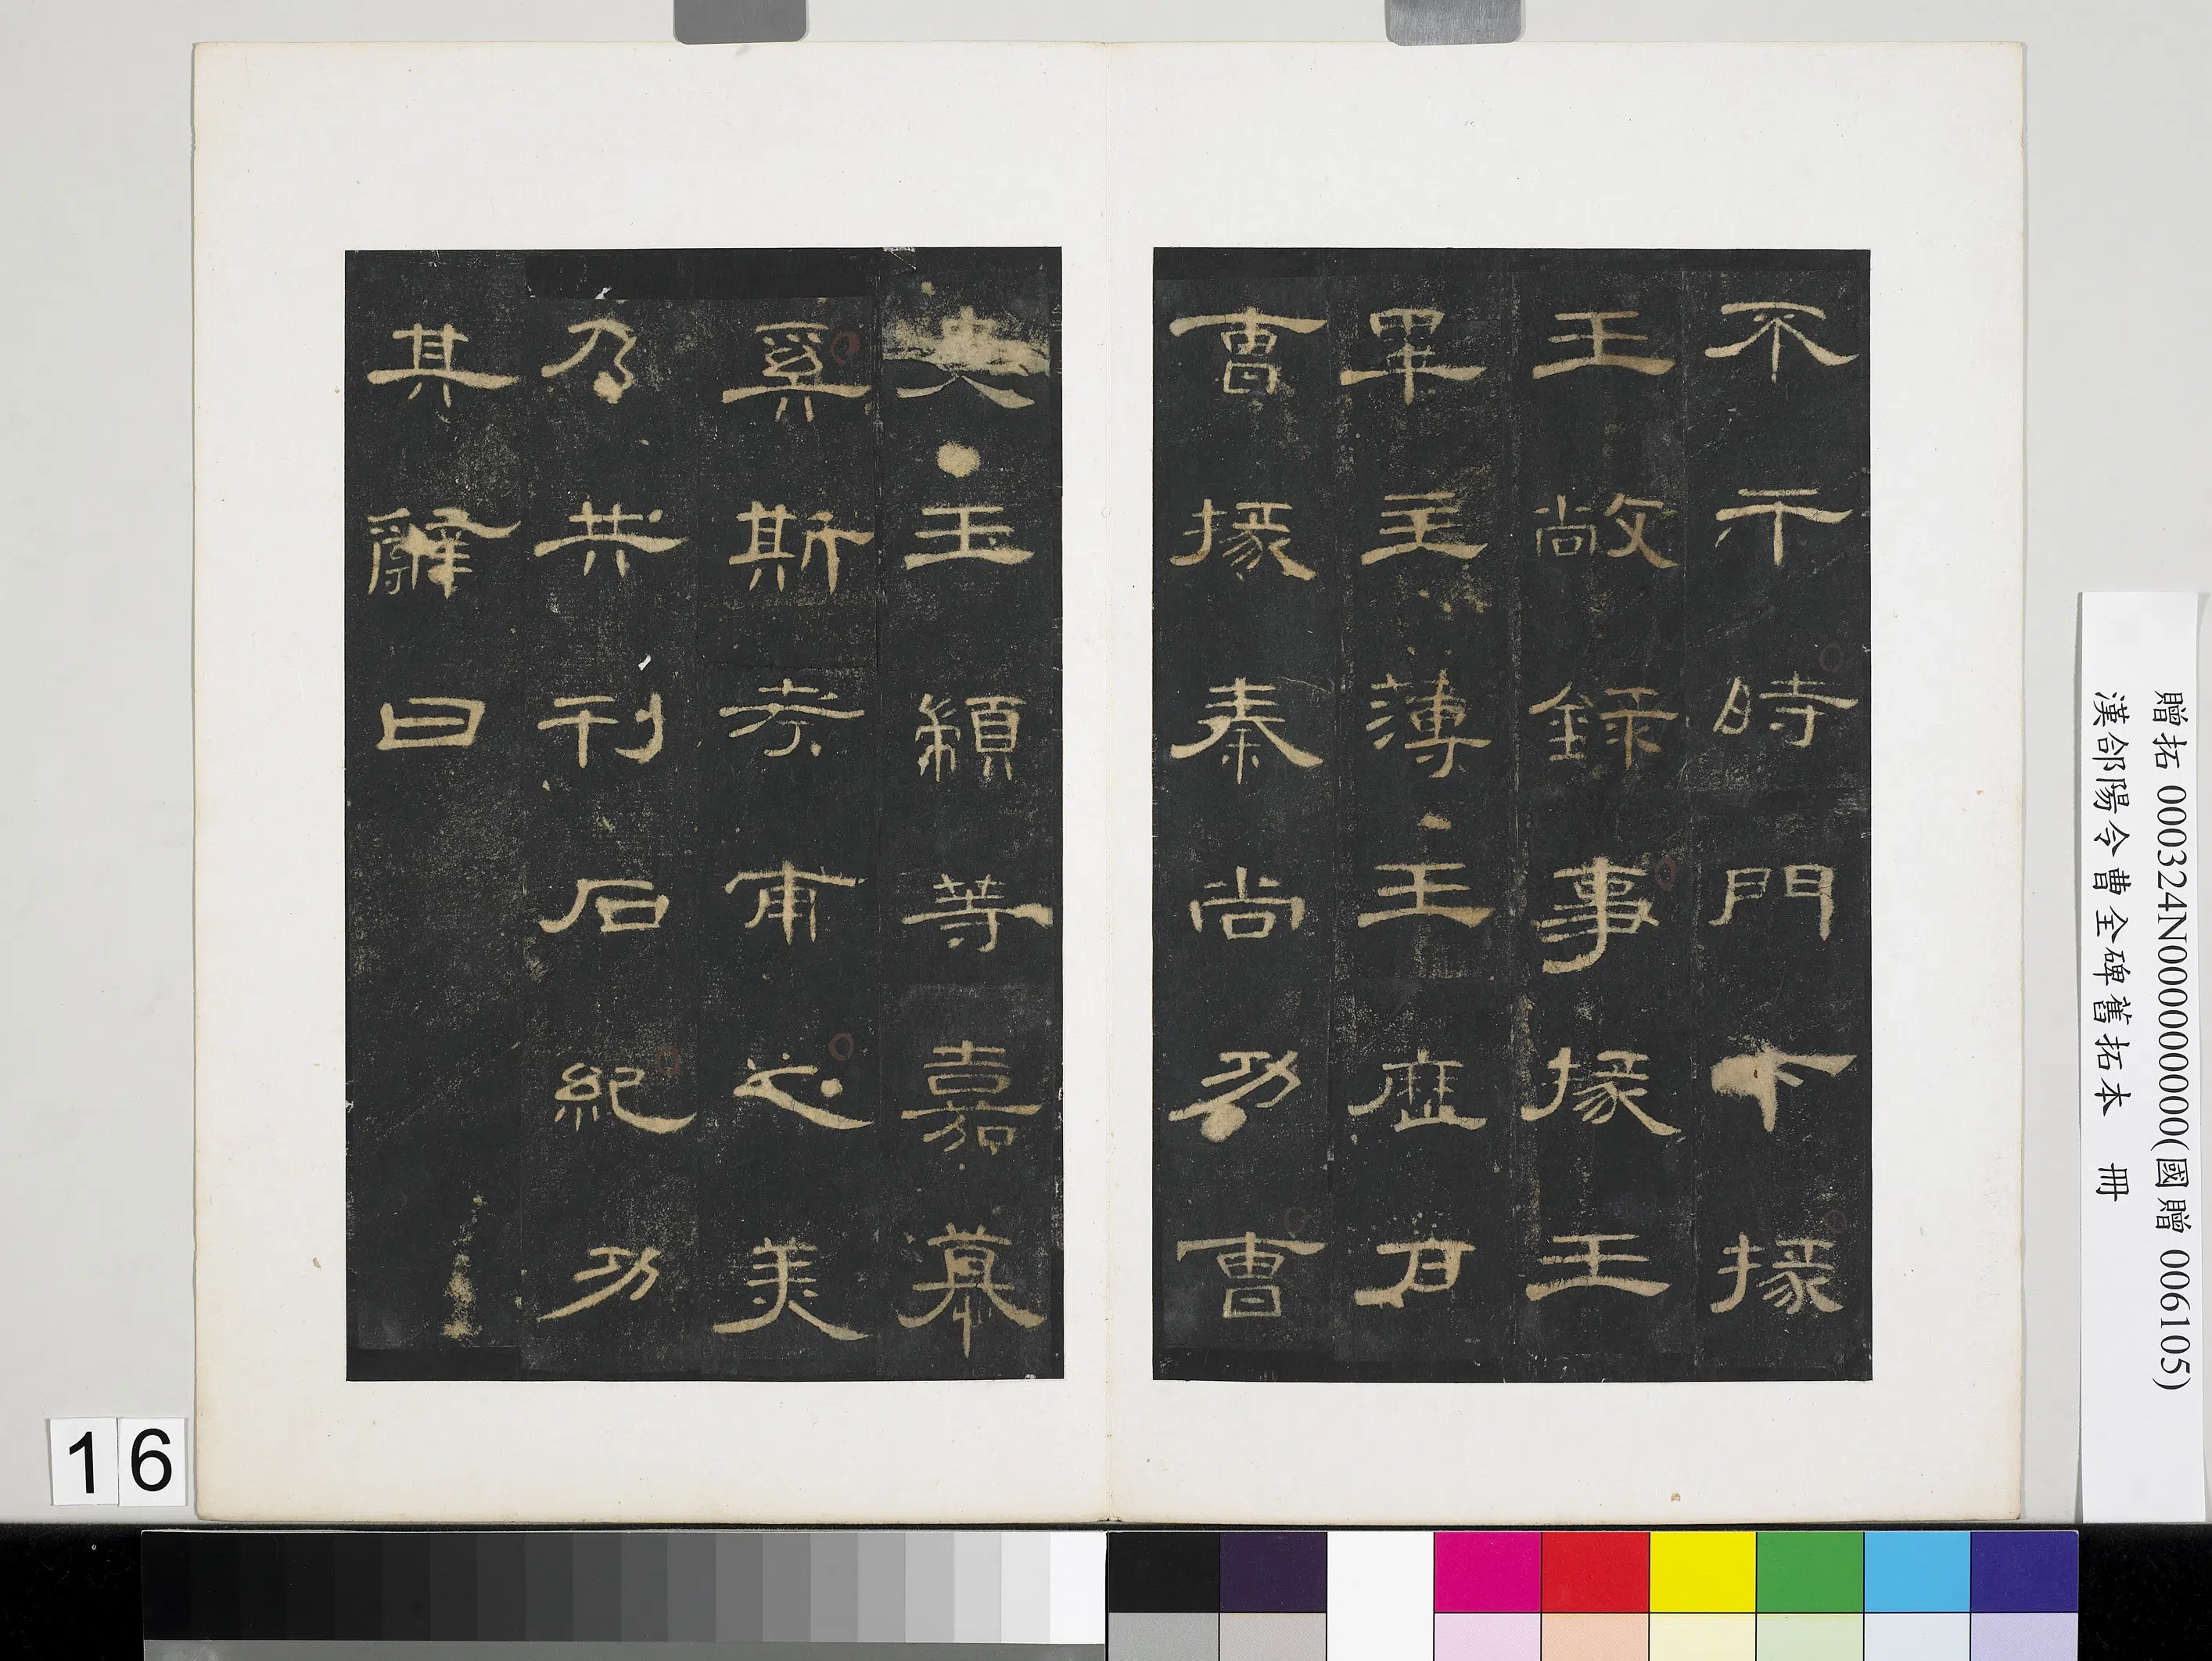 不干時門下掾
王敞錄事掾王
畢主薄王歷戶
曹掾秦尚功曹
史王顓等嘉慕
奚斯考甫之美
乃共刊石紀功
其辭曰
贈拓 000324N000000000(國贈 006105)
漢郃陽令曹全碑舊拓本 冊
16